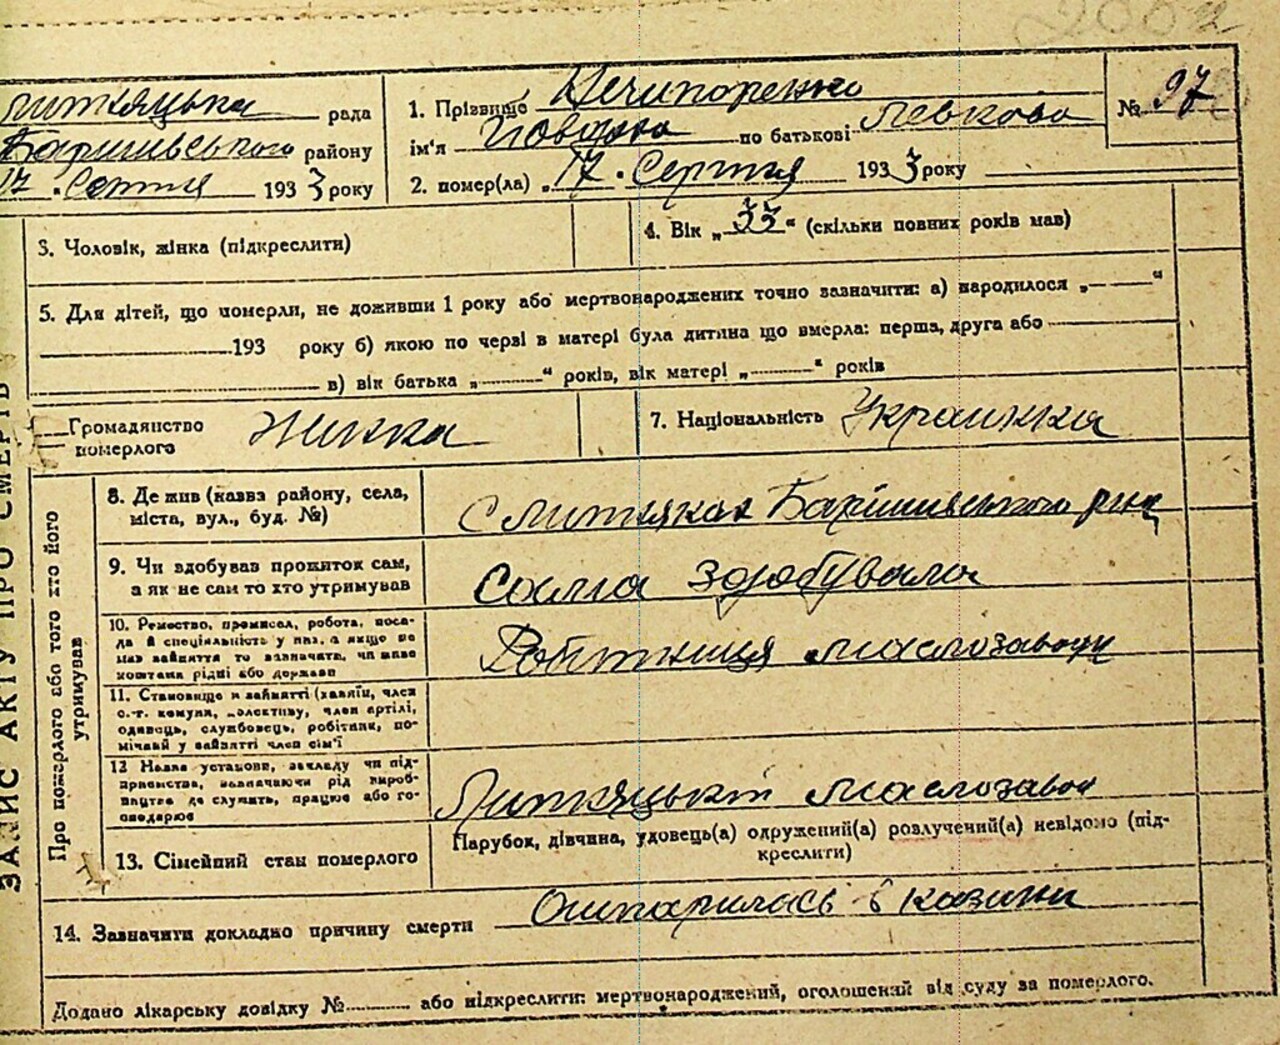 Литкяцька рада
Баришівського району
17 . Серпня 1933 року
1. Прізвище Нечипоренко
ім'я по батькові Левкова
2. помер(ла) „17 . Серпня 1933 року
№ 97
3. Чоловік, жінка (підкреслити)
4. Вік „33“ (скільки повних років мав)
5. Для дітей, що померли, не доживши 1 року або мертвонароджених точно зазначити: а) народилося „ “
193 року б) якою по черві в матері була дитина що вмерла: перша, друга або
в) вік батька „ “ років, вік матері „ “ років
Громадянство
померлого
Жинка
7. Національність Украинка
ЗАПИС АКТУ ПРО СМЕРТЬ
Про померлого або того хто його
утримував
8. Де жив (назва району, села,
міста, вул., буд. №)
с Литняках Баришивського рна
9. Чи здобував прожиток сам,
а як не сам то хто утримував
Сама здобувала
10. Ремество, промисел, робота, поса-
да й спеціяльність у них, а якщо не
мав зайняття то зазначити, чи живе
коштами рідні або держави
Робітниця маслозаводу
11. Становище в зайнятті (хазяїн, член
с.-г. комуни, колективу, член артілі,
одинець, службовець, робітник, по-
мічний у зайнятті член сім'ї
12 Назва установи, закладу чи під-
приємства, зазначаючи рід вироб-
ництва де служить, працює або го-
сподарює
Литкяцький маслозавод
13. Сімейний стан померлого
Парубок, дівчина, удовець(а) одружений(а) розлучений(а) невідомо (під-
креслити)
14. Зазначити докладно причину смерти Ошпарилась в казини
Додано лікарську довідку № або підкреслити: мертвонароджений, оголошений від суду за померлого.